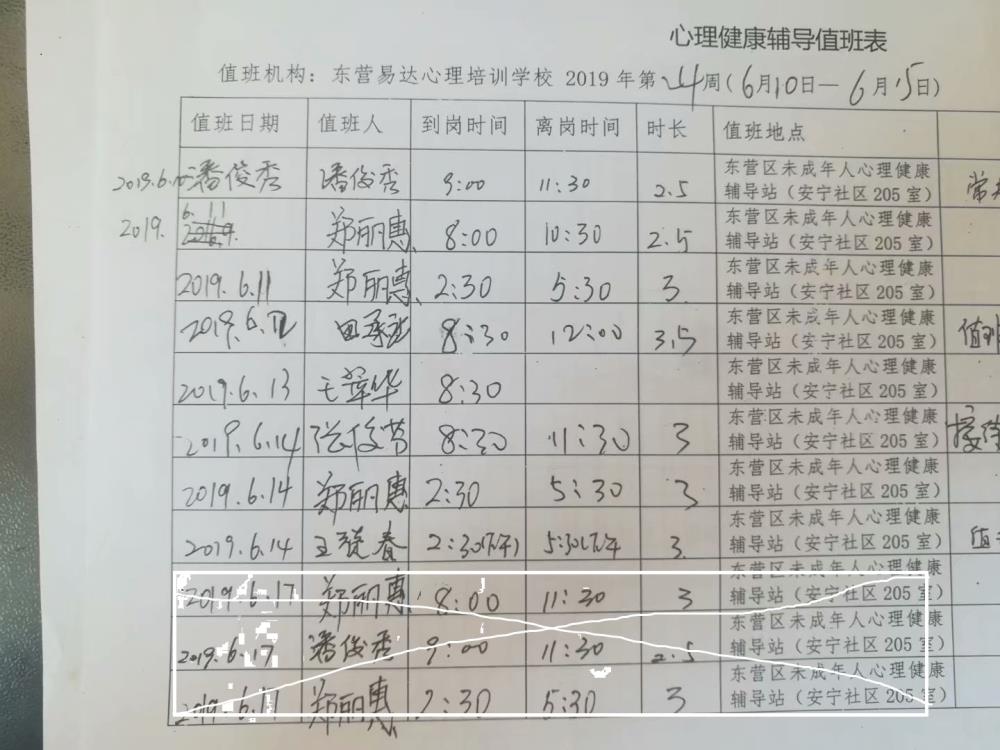 心理健康辅导值班表
值班机构：东营易达心理培训学校 2019 年第24周(6月10日—6月15日)
值班日期 值班人 到岗时间 离岗时间 时长 值班地点
2019.6.10 潘俊秀 潘俊秀 9:00 11:30 2.5 东营区未成年人心理健康
辅导站（安宁社区 205 室）
2019. 6.11 郑丽惠 8:00 10:30 2.5 东营区未成年人心理健康
辅导站（安宁社区 205 室）
2019.6.11 郑丽惠 2:30 5:30 3 东营区未成年人心理健康
辅导站（安宁社区 205 室）
2019.6.12 8:30 12:00 3.5 东营区未成年人心理健康
辅导站（安宁社区 205 室） 值班
2019.6.13 8:30 东营区未成年人心理健康
辅导站（安宁社区 205 室）
2019.6.14 8:30 11:30 3 东营区未成年人心理健康
辅导站（安宁社区 205 室） 接待
2019.6.14 郑丽惠 2:30 5:30 3 东营区未成年人心理健康
辅导站（安宁社区 205 室）
2019.6.14 2:30(下午) 5:30(下午 3 东营区未成年人心理健康
辅导站（安宁社区 205 室） 值
2019.6.17 郑丽惠 8:00 11:30 3 东营区未成年人心理健康
辅导站（安宁社区 205 室）
2019.6.17 潘俊秀 9:00 11:30 2.5 东营区未成年人心理健康
辅导站（安宁社区 205 室）
2019.6.17 郑丽惠 2:30 5:30 3 东营区未成年人心理健康
辅导站（安宁社区 205 室）